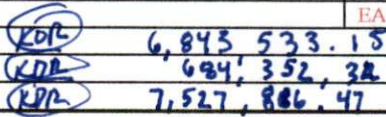 EA
KDR 6,843 533.15
KDR 684,352,32
KDR 7,527,886.47